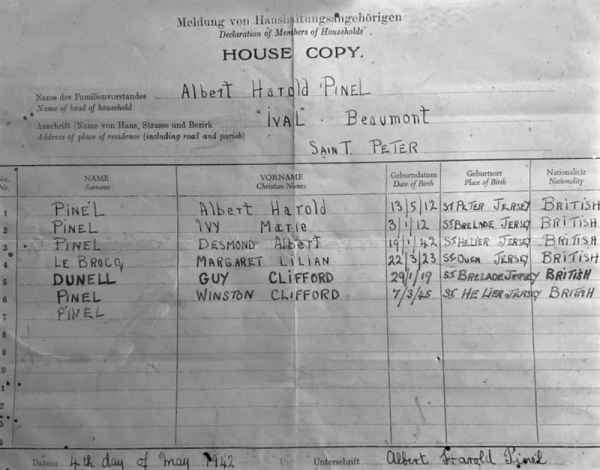 Meldung von Haushaltungsangehörigen
Declaration of Members of Households
HOUSE COPY.
Name des Familienvorstandes Albert Harold PINEL
Name of head of household
Anschrift (Name von Haus, Strasse und Bezirk "IVAL" Beaumont
Address of place of residence (including road and parish) SAINT PETER
No. NAME VORNAME Geburtsdatum Geburtsort Nationalität
No. Surname Christian Names Date of Birth Place of Birth Nationality
1 PINEL Albert Harold 13/5/12 ST PETER JERSEY BRITISH
2 PINEL IVY Marie 3/1/12 ST BRELADE JERSEY BRITISH
3 PINEL DESMOND Albert 19/1/42 ST HELIER JERSEY BRITISH
4 LE BROCQ MARGARET LILIAN 22/3/23 ST OUEN JERSEY BRITISH
5 DUNELL GUY CLIFFORD 29/1/19 ST BRELADE JERSEY BRITISH
6 PINEL WINSTON CLIFFORD 7/3/45 ST HELIER JERSEY BRITISH
7 PINEL
8
9
10
11
Datum 4th day of May 1942 Unterschrift Albert Harold Pinel